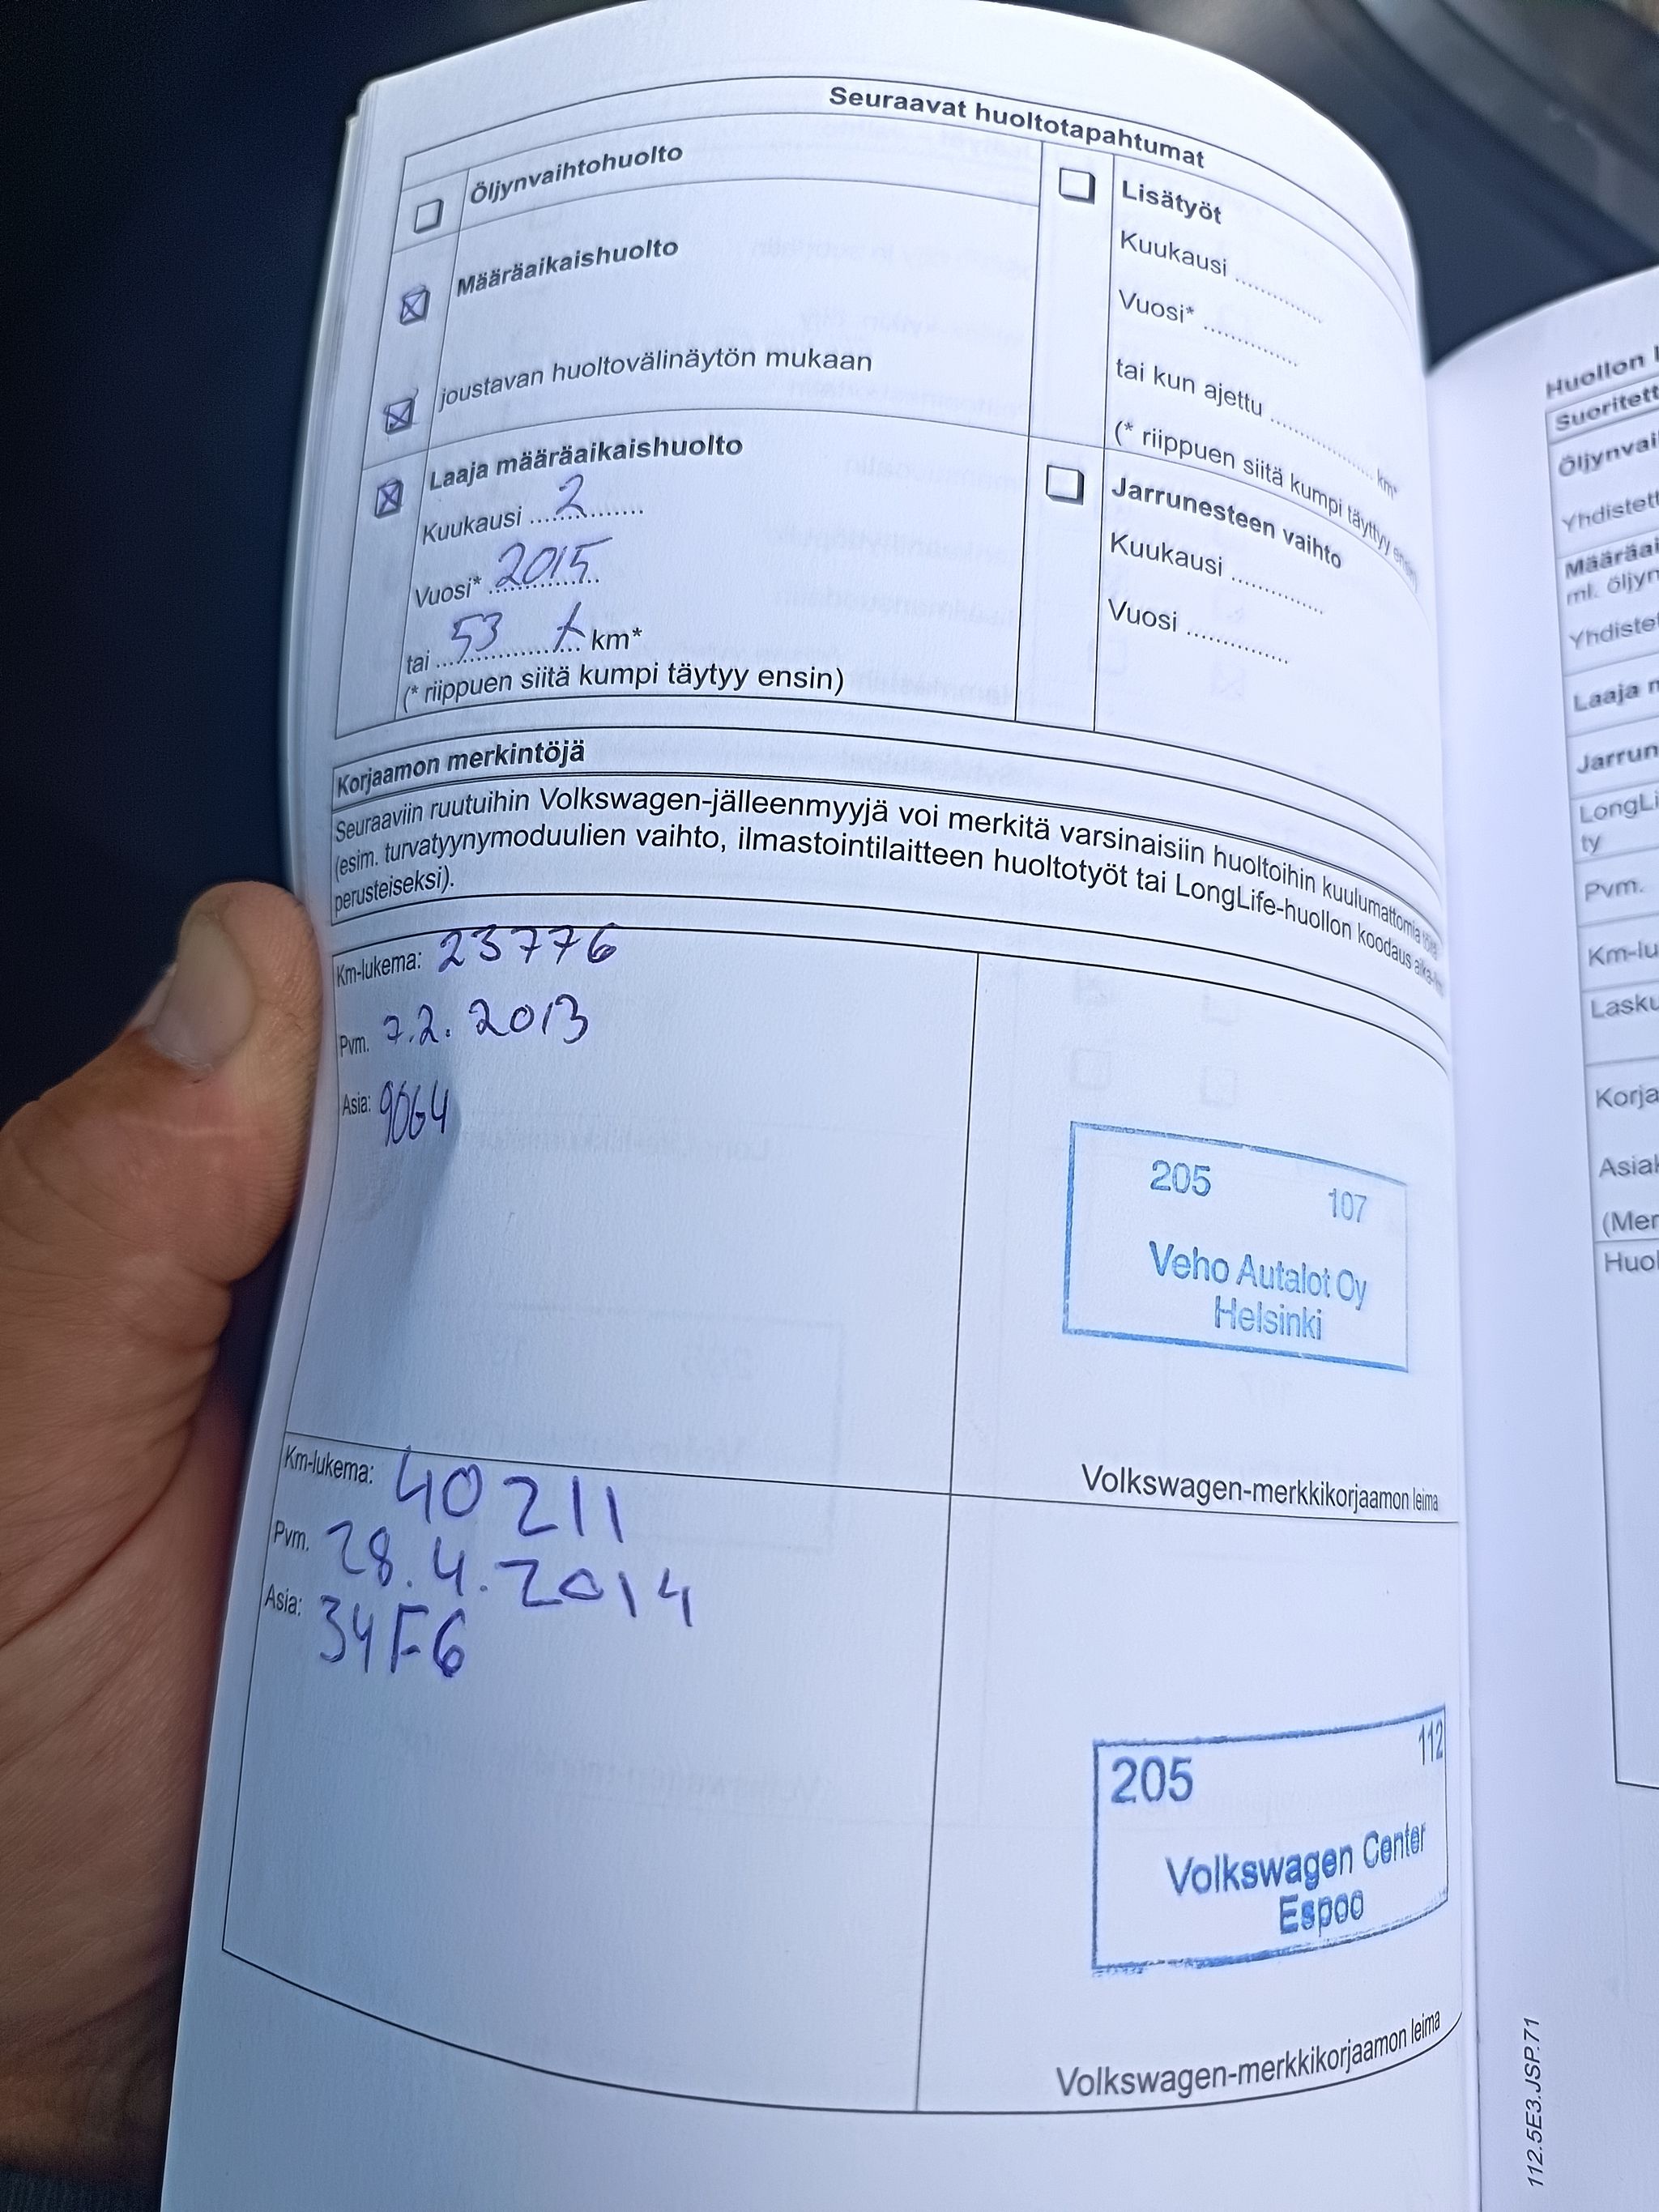 Seuraavat huoltotapahtumat
Öljynvaihtohuolto
Määräaikaishuolto
joustavan huoltovälinäytön mukaan
Laaja määräaikaishuolto
Kuukausi 2
Vuosi* 2015
tai 53 t km*
(* riippuen siitä kumpi täytyy ensin)
Lisätyöt
Kuukausi ..............
Vuosi* ...............
tai kun ajettu ................ km*
(* riippuen siitä kumpi täyttyy ensin)
Jarrunesteen vaihto
Kuukausi ..............
Vuosi ...............
Korjaamon merkintöjä
Seuraaviin ruutuihin Volkswagen-jälleenmyyjä voi merkitä varsinaisiin huoltoihin kuulumattomia
(esim. turvatyynymoduulien vaihto, ilmastointilaitteen huoltotyöt tai LongLife-huollon koodaus
perusteiseksi).
Km-lukema: 23776
Pvm. 7.2.2013
Asia: 9064
205 107
Veho Autalot Oy
Helsinki
Volkswagen-merkkikorjaamon leima
Km-lukema: 40211
Pvm. 28.4.2014
Asia: 34F6
205 112
Volkswagen Center
Espoo
Volkswagen-merkkikorjaamon leima
112.5E3.JSP.71
Huollon
Suoritett
Öljynvai
Yhdistett
Määräai
ml. öljyn
Yhdistet
Laaja m
Jarrun
LongLi
ty
Pvm.
Km-lu
Lasku
Korja
Asiak
(Mer
Huol